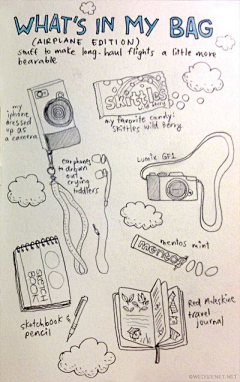 WHAT'S IN MY BAG
(AIRPLANE EDITION)
stuff to make long-haul flights a little more
bearable
my
iphone
dressed
up as
a camera
Skittles
my favorite candy:
skittles wild berry
earphones
to drown
out
crying
toddlers
Lumix GF1
mentos mint
mentos
SKETCH
BOOK
sketchbook &
pencil
Red Moleskine
travel
journal